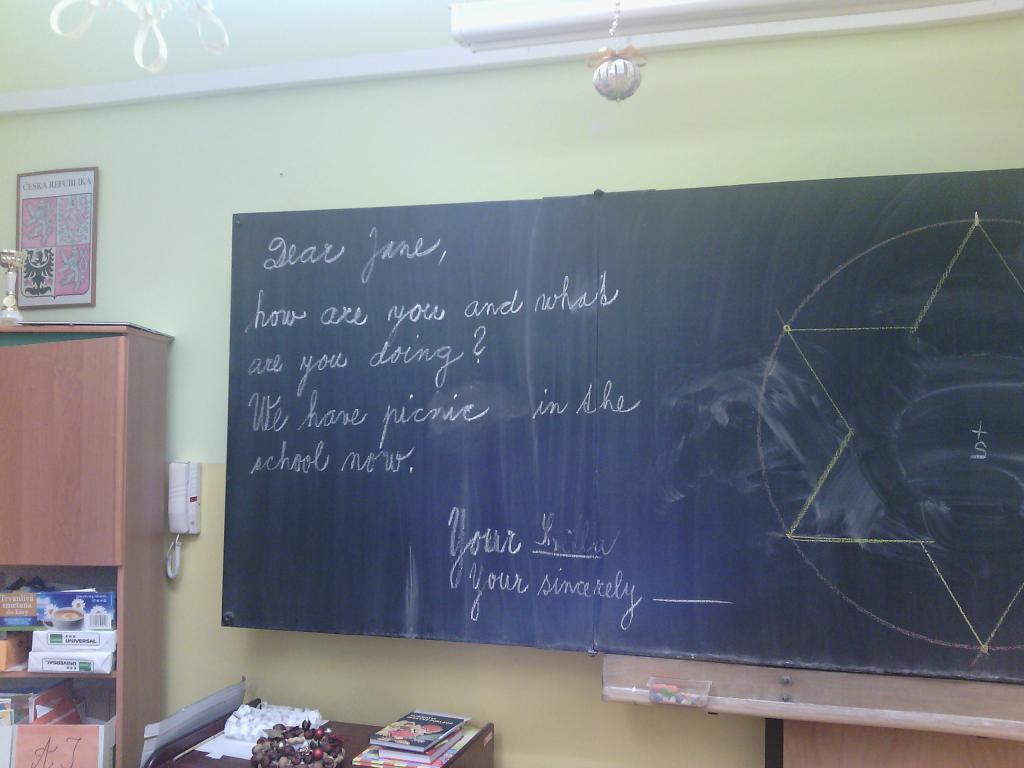 ČESKÁ REPUBLIKA
Dear Jane,
how are you and what's
are you doing?
We have picnic in the
school now.
Your
Your sincerely
+
S
Trvanlivá
smetana
do kávy
UNIVERSAL
UNIVERSAL
AJ